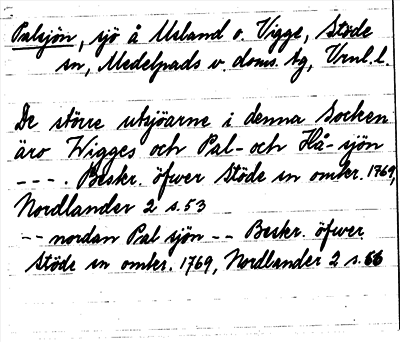 Palsjön, sjö å Usland o. Vigge, Stöde
sn, Medelpads v. doms. tg, Vrnl. l.
De större utsjöarne i denna Socken
äro Wigges och Pal- och Hå-sjön
----. Beskr. öfwer Stöde sn omkr. 1769,
Nordlander 2 s. 53
-- nordan Pal sjön -- Beskr. öfwer
Stöde sn omkr. 1769, Nordlander 2 s. 56